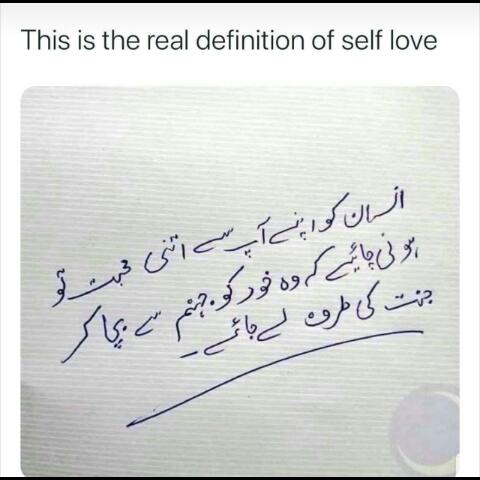 This is the real definition of self love
انسان کو اپنے آپ سے اتنی محبت تو
ہونی چاہیے کہ وہ خود کو جہنم سے بچا کر
جنت کی طرف لے جائے۔